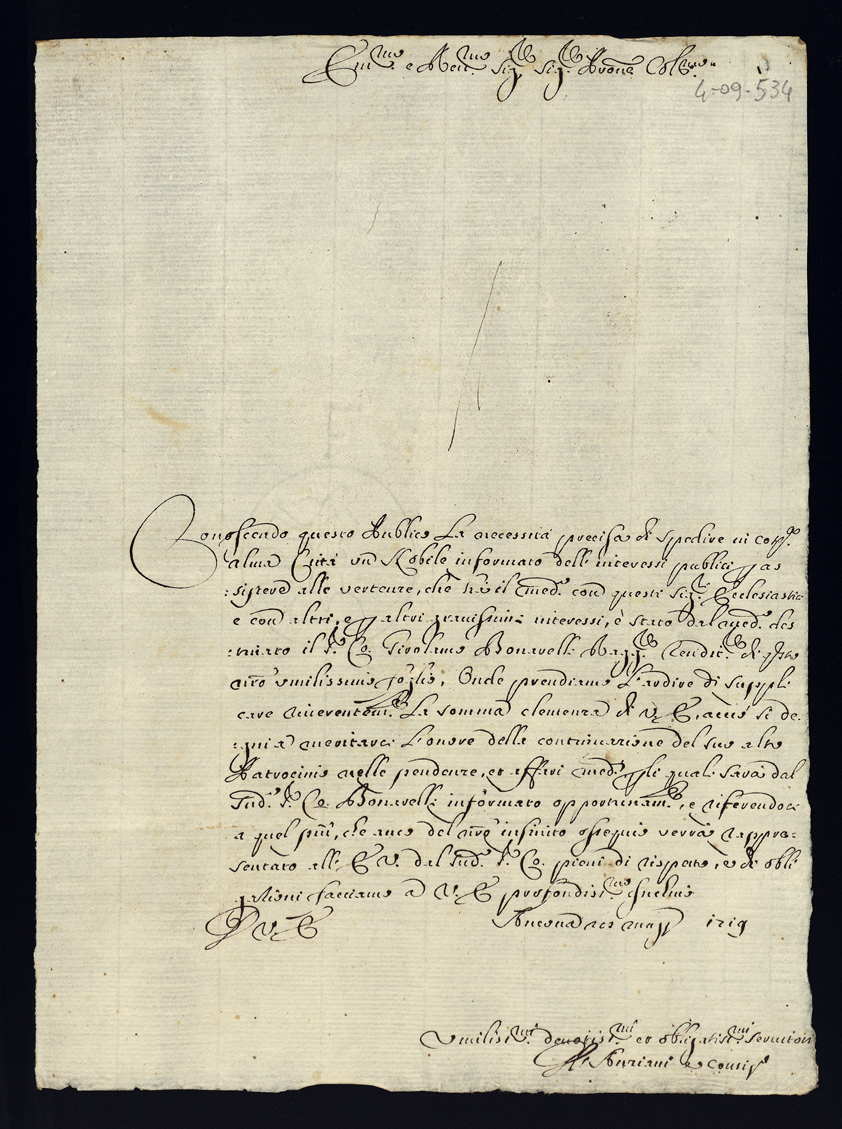 Em.mo e Rev.mo Sig.r Sig.r Prone Col.mo
4-09-534
Conoscendo questo Publico la necessità precisa di spedire in cotes.ta
alma Città un Nobile informato delli interessi publici p as
sistere alle vertenze, che hà il med.o con questi Sig.ri Ecclesiastici
e con altri, e p altri gravissimi interessi, è stato dal med.o des
tinato il S.r Co. Girolamo Bonarelli di q.sto
n̄ro umilissimo foglio. Onde prendiamo l'ardire di suppli
care riverentem.te la somma clemenza di V. E., acciò si de:
gni à meritarci l'onore della continuazione del suo alto
Patrocinio nelle pendenze, et affari med.i p li quali sarà dal
sud.o S.r Co. Bonarelli informato opportunam.te, e riferendoci
a quel più, che anco del n̄ro infinito ossequio verrà rappre:
sentato all' E. V. dal sud.o S.r Co. pieni di rispetto, e di obli
gationi facciamo a V. E. profondiss.mo Inchino
D V. E.
Ancona maggo 1719
Umiliss.mi devotiss.mi et obligatiss.mi servitori
Gl' Anziani e Consig.o